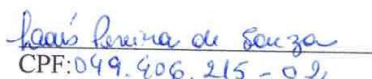 Laaís Pereira de Souza
CPF:049.406.215-02